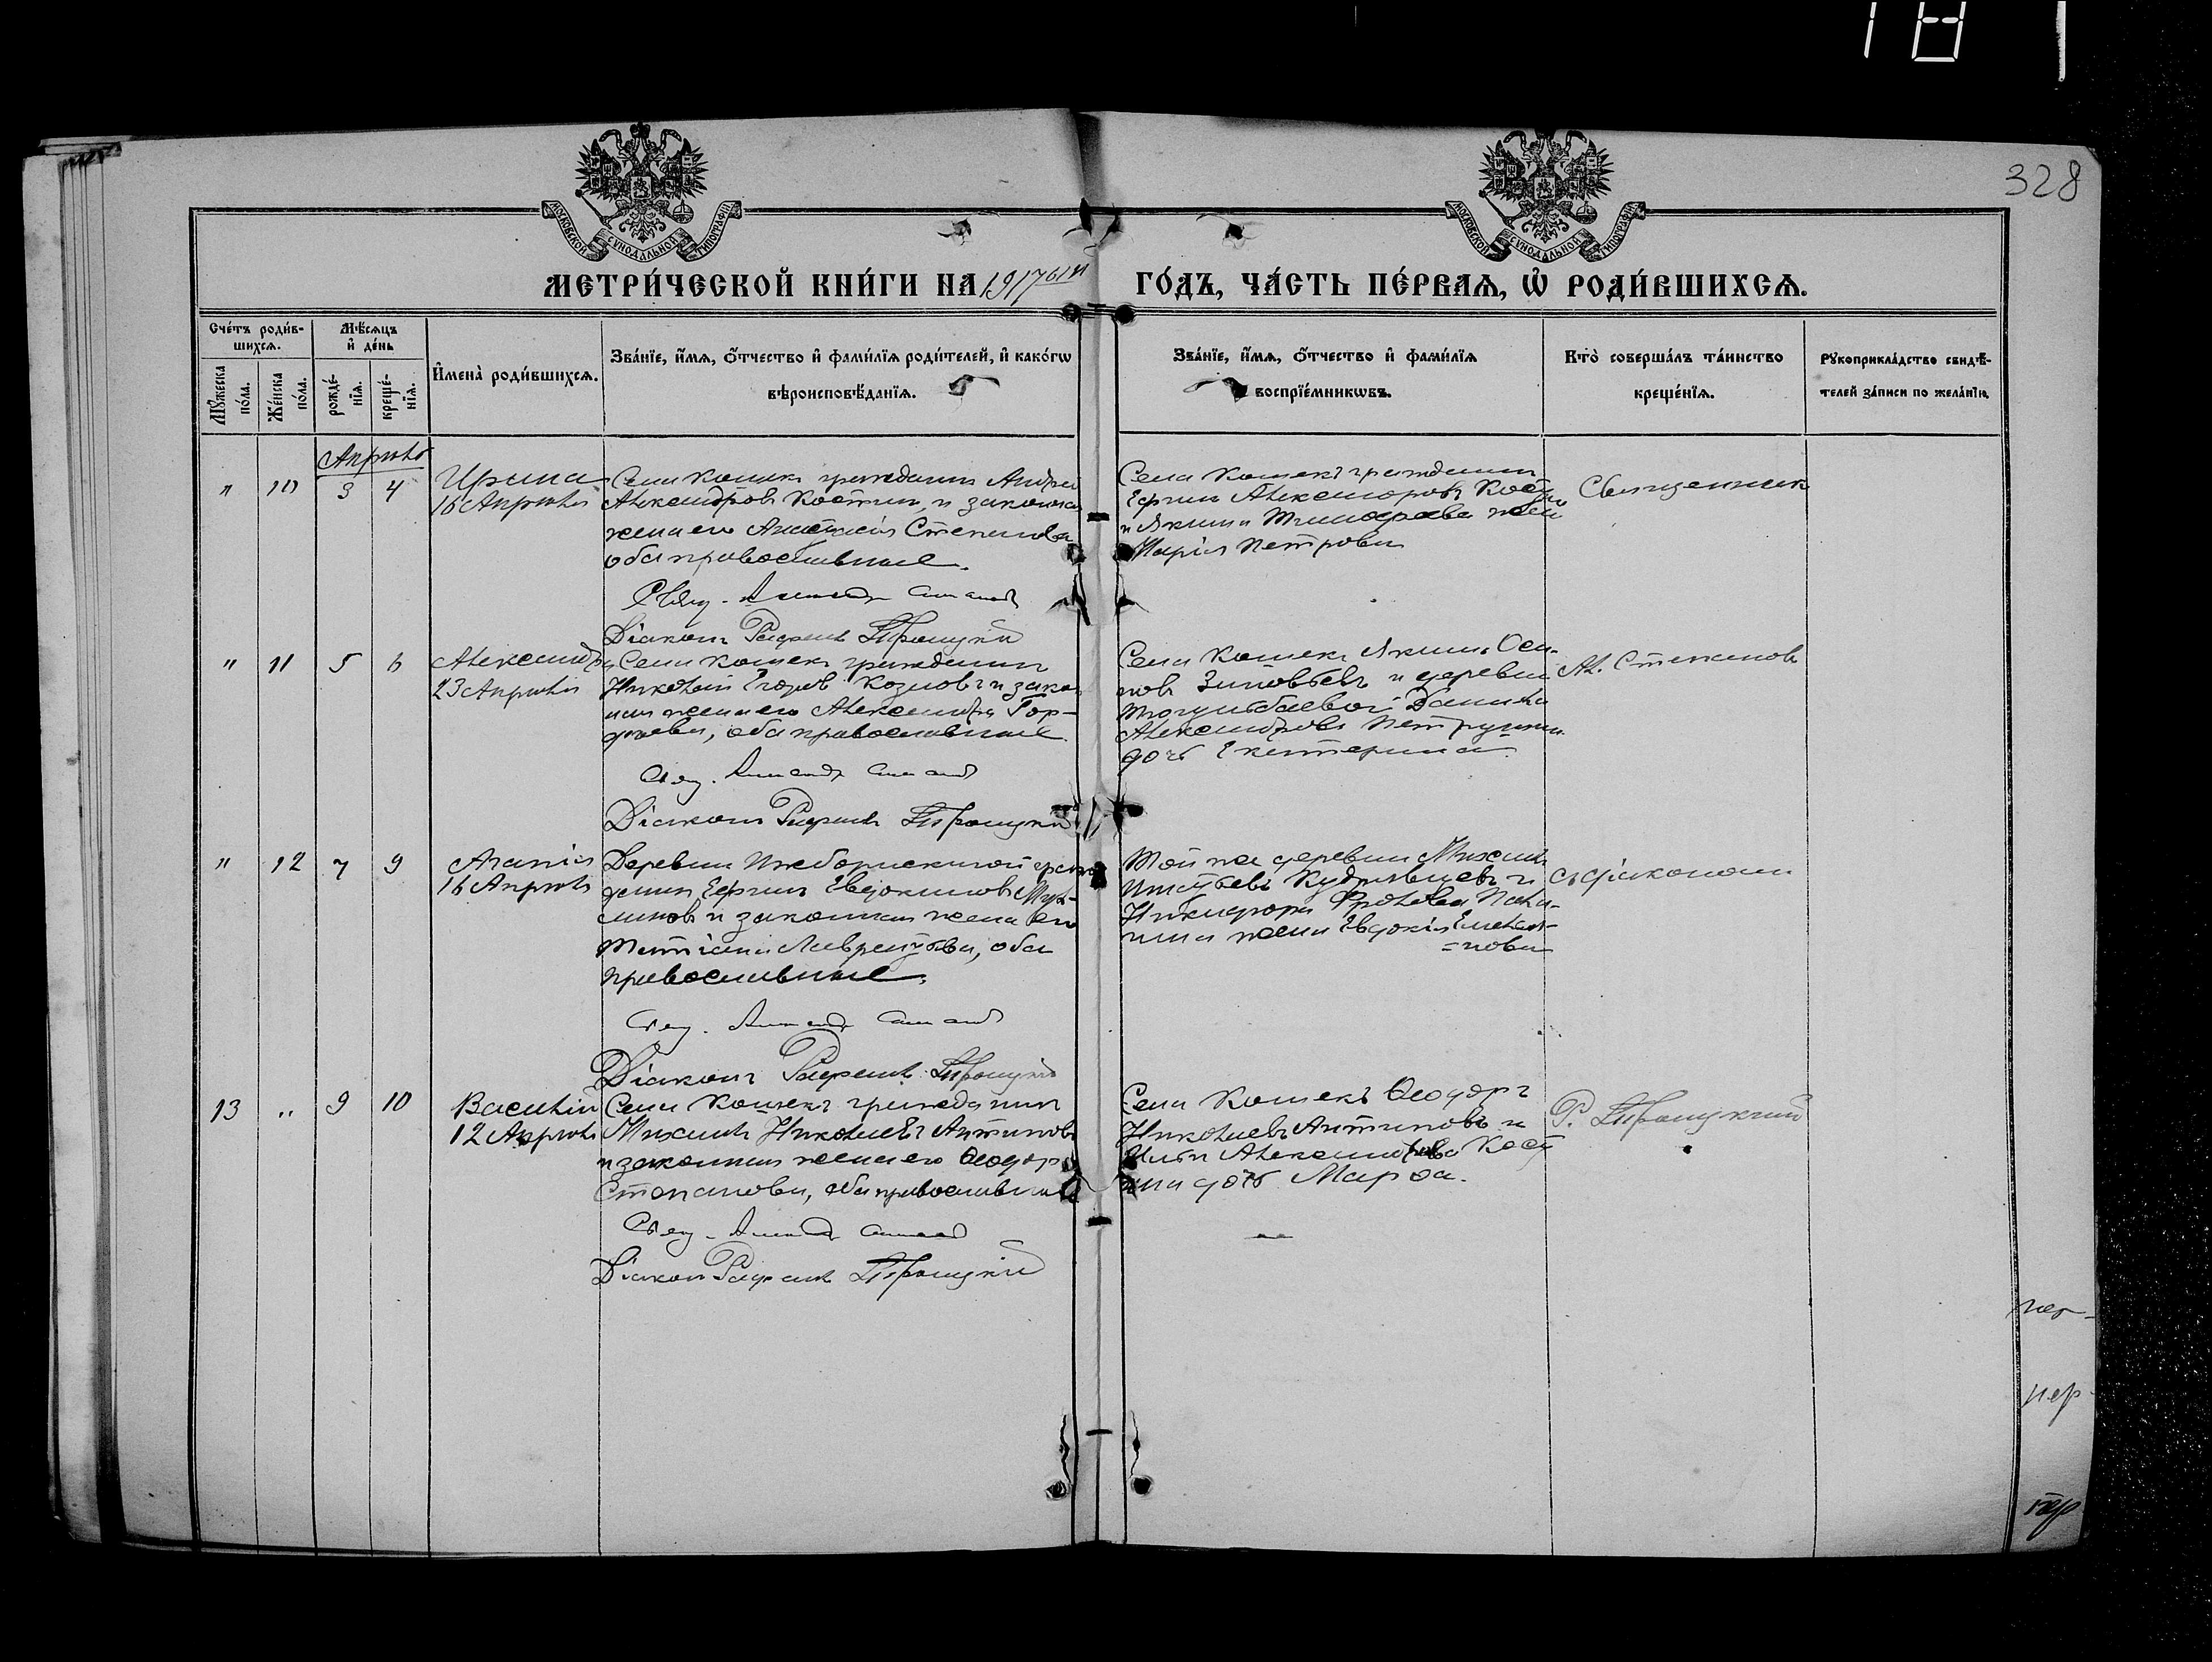 328
МОСКОВСКОЙ СУНОДАЛЬНОЙ ТИПОГРАФІИ
МОСКОВСКОЙ СУНОДАЛЬНОЙ ТИПОГРАФІИ
МЕТРИ́ЧЕСКОЙ КНИ́ГИ НА 1917 ый ГО́ДЪ, ЧА́СТЬ ПЕ́РВАѦ, Ѽ РОДИ́ВШИХСѦ.
Сче́тъ роди́в-
шихсѧ.
Мꙋ́жеска по́ла.
Же́нска по́ла.
Мѣ́сѧцъ
и҆ де́нь
рожде́-
нїѧ.
креще́-
нїѧ.
И҆мена̀ роди́вшихсѧ.
Зва́нїе, и҆́мѧ, ѻ҆́тчество и҆ фами́лїѧ роди́телей, и҆ како́гѡ
вѣроисповѣ́данїѧ.
Зва́нїе, и҆́мѧ, ѻ҆́тчество и҆ фами́лїѧ
воспрїе́мникѡвъ.
Кто̀ соверша́лъ та́инство
креще́нїѧ.
Рꙋкоприкла́дство свидѣ́-
телей за́писи по жела́нїю.
Апрѣль
" 10 3 4
Ирина
16 Апрѣля
Села Кошекъ гражданинъ Андрей
Александровъ Костинъ, и законная
жена его Анастасія Степанова
оба православные.
Свящ. Александръ
Діаконъ Рафаилъ Троицкій
Села Кошекъ гражданинъ
Ефимъ Александровъ
и Якима Тимофеева жена
Марія Петрова
Священникъ
" 11 5 6
Александра
23 Апрѣля
Села Кошекъ гражданинъ
Николай Егоровъ Козловъ и закон
ная жена его Александра Гор-
деева, оба православные
Свящ. Александръ
Діаконъ Рафаилъ Троицкій
Села Кошекъ Якимъ Оси-
повъ Зиновьевъ и деревни
Данила
Александрова
дочь Екатерина
Ал. Степановъ
" 12 7 9
Агапія
16 Апрѣля
Деревни граж
данинъ Ефимъ Евдокимовъ
и законная жена его
Татіана Лаврентьева, оба
православные.
Свящ. Александръ
Діаконъ Рафаилъ Троицкій
Той же деревни Михаилъ
Игнатьевъ Кудрявцевъ и
Никифора Фролова
жена Евдокія Емелья-
=нова
съ діакономъ
13 " 9 10
Василій
12 Апрѣля
Села Кошекъ гражданинъ
Михаилъ Николаевъ Антиповъ
и законная жена его Ѳеодора
Степанова, оба православные
Свящ. Александръ
Діаконъ Рафаилъ Троицкій
Села Кошекъ Ѳеодоръ
Николаевъ Антиповъ и
Ильи Александрова Кост
ина дочь Марѳа.
Р. Троицкий
пер